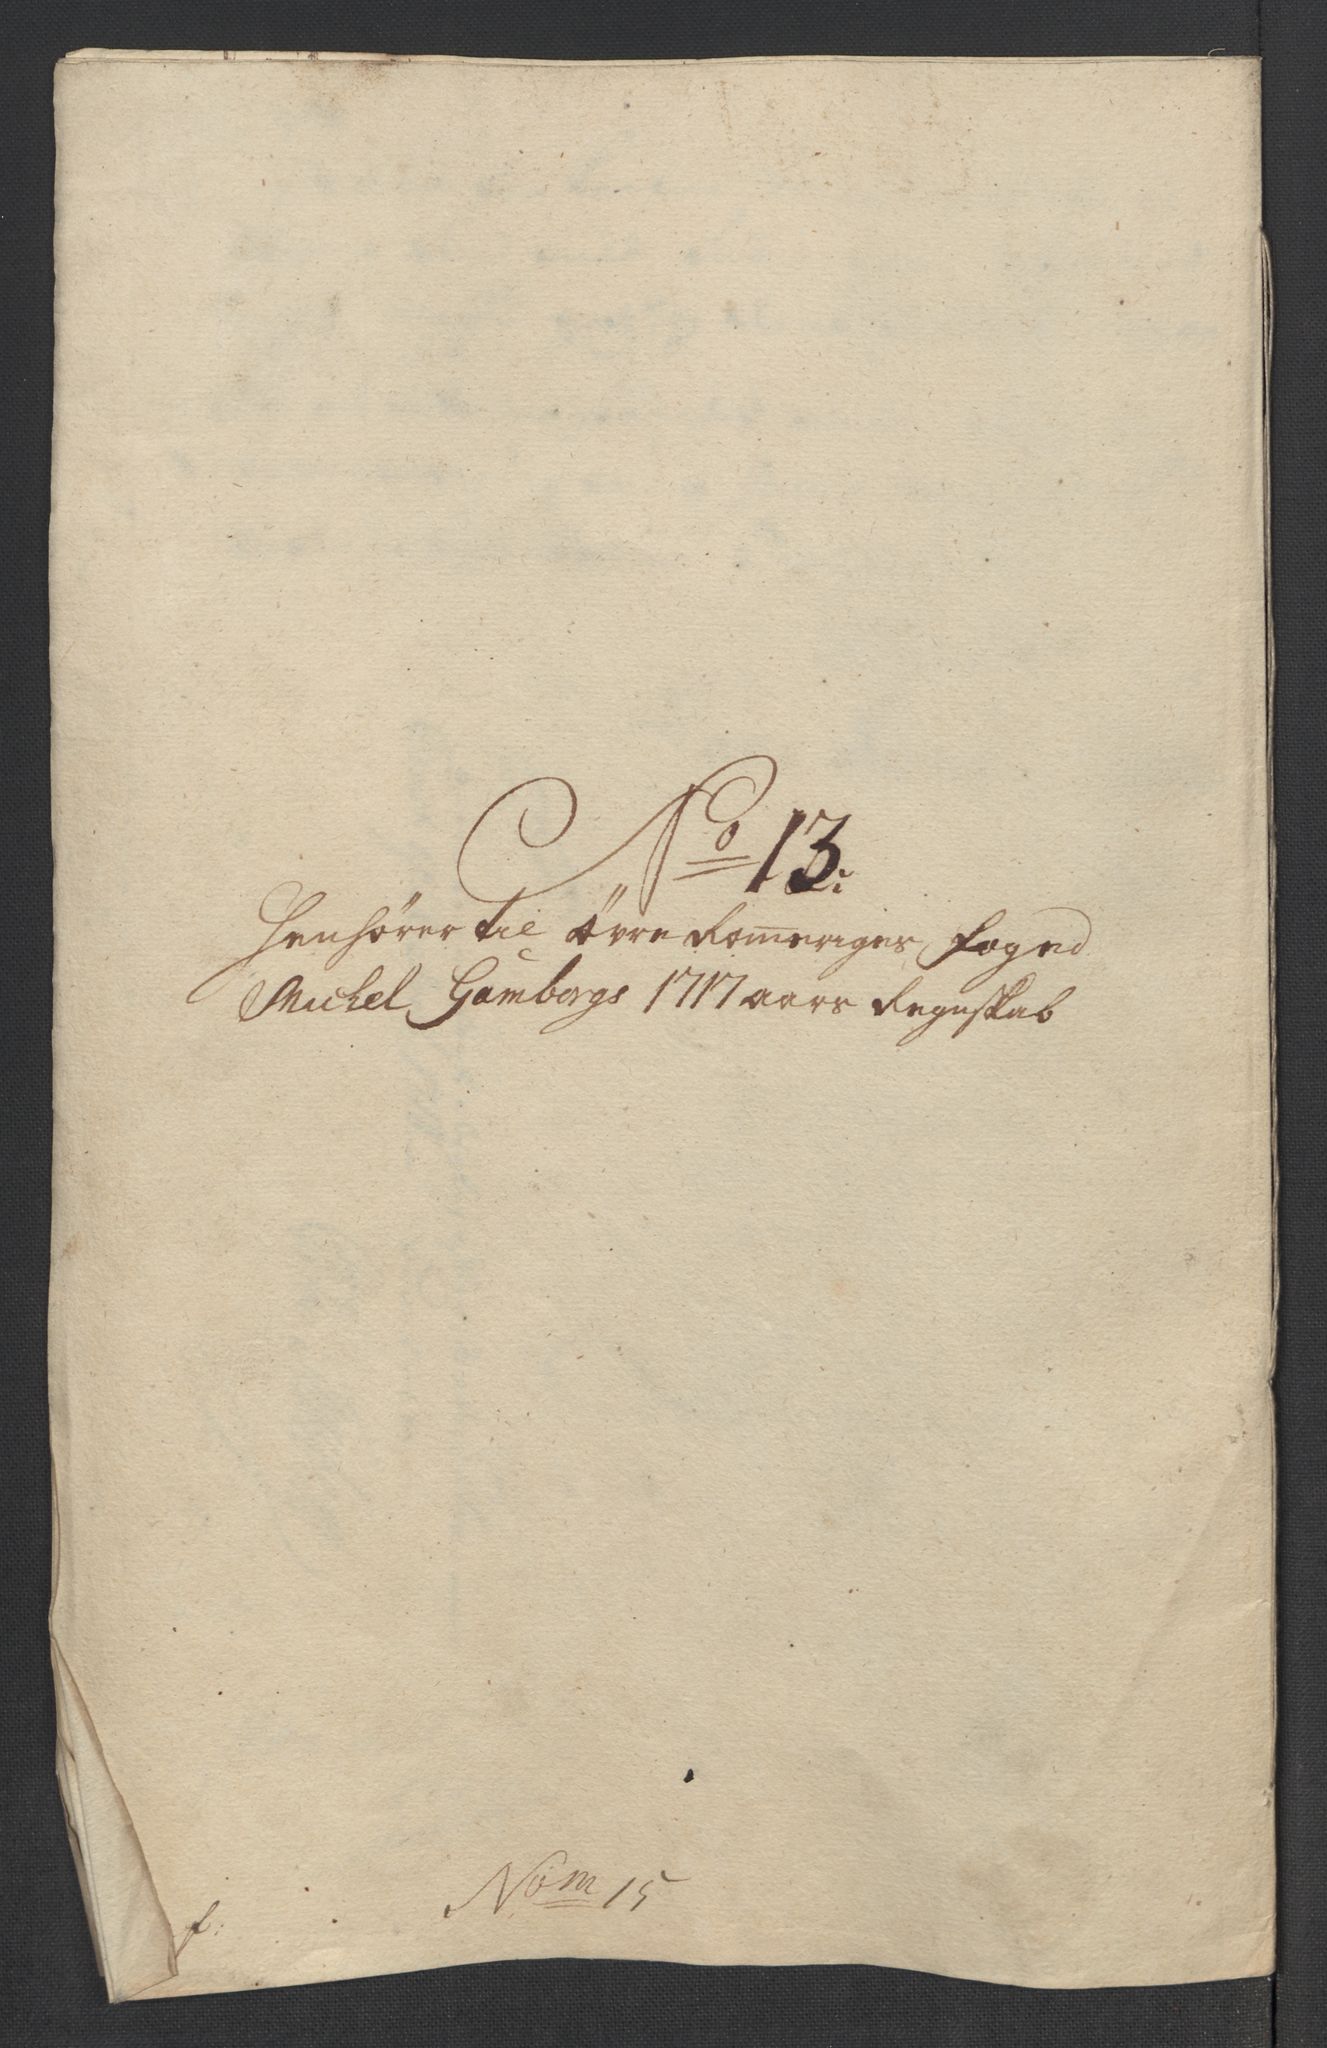 No 13:
Henhører til Øvre Romeriges foged
Michel Gamborgs 1717 aars Regnskab
Nom 15
f: